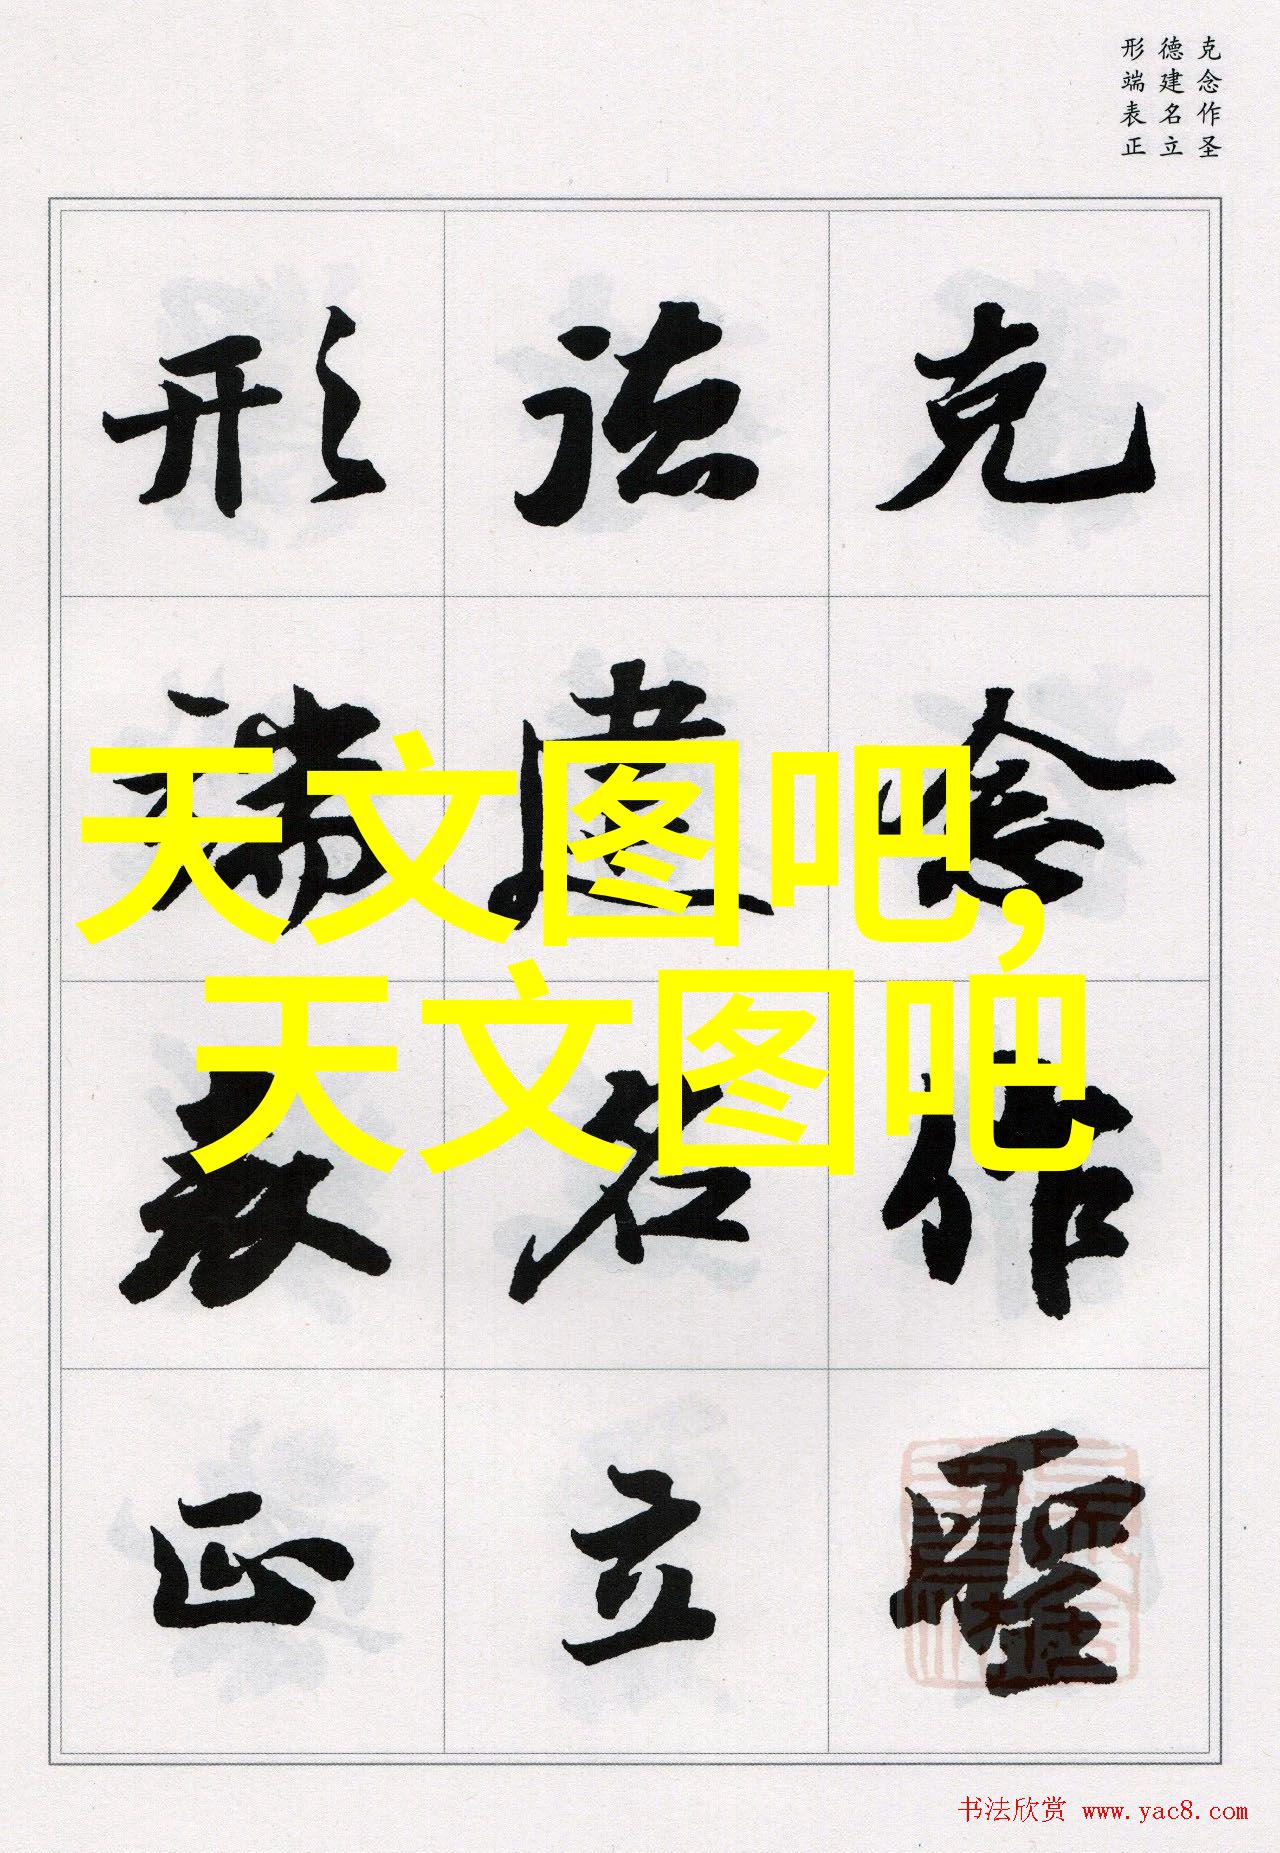 克念作圣
德建名立
形端表正
克念作聖
德建名立
形端表正
天文图吧,
天文图吧
书法欣赏 www.yac8.com